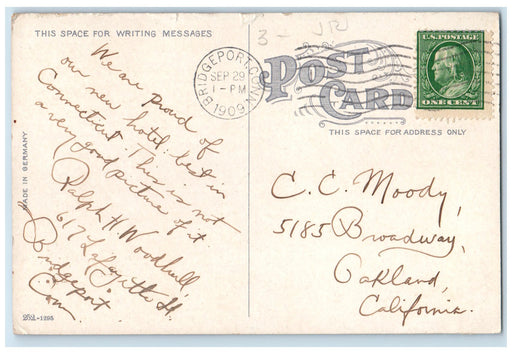 THIS SPACE FOR WRITING MESSAGES
We are proud of
our new hotel: best in
Connecticut This is not
a very good picture of it
Ralph H. Woodhull,
617 Lafayette St.
Bridgeport
Conn.
MADE IN GERMANY
3- JR
BRIDGEPORT, CONN.
SEP 29
1-PM
1909
POST
CARD
THIS SPACE FOR ADDRESS ONLY
U.S. POSTAGE
ONE CENT
C. C. Moody,
5185 Broadway,
Oakland,
California.